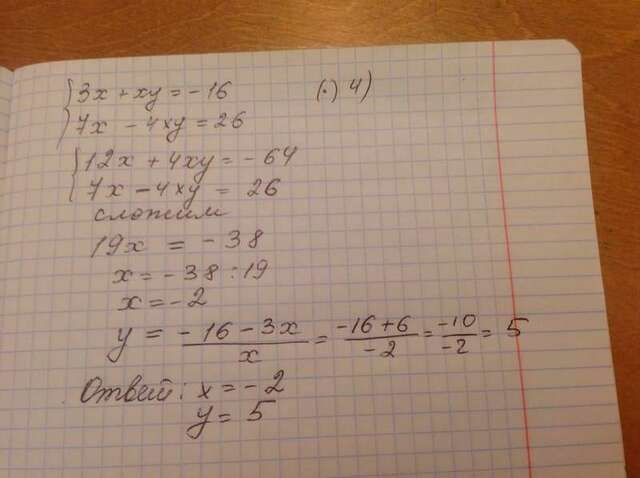 3x + xy = -16 (·) 4)
7x - 4xy = 26
12x + 4xy = -64
7x - 4xy = 26
сложим
19x = -38
x = -38 : 19
x = -2
y = \frac{-16-3x}{x} = \frac{-16+6}{-2} = \frac{-10}{-2} = 5
Ответ: x = -2
y = 5